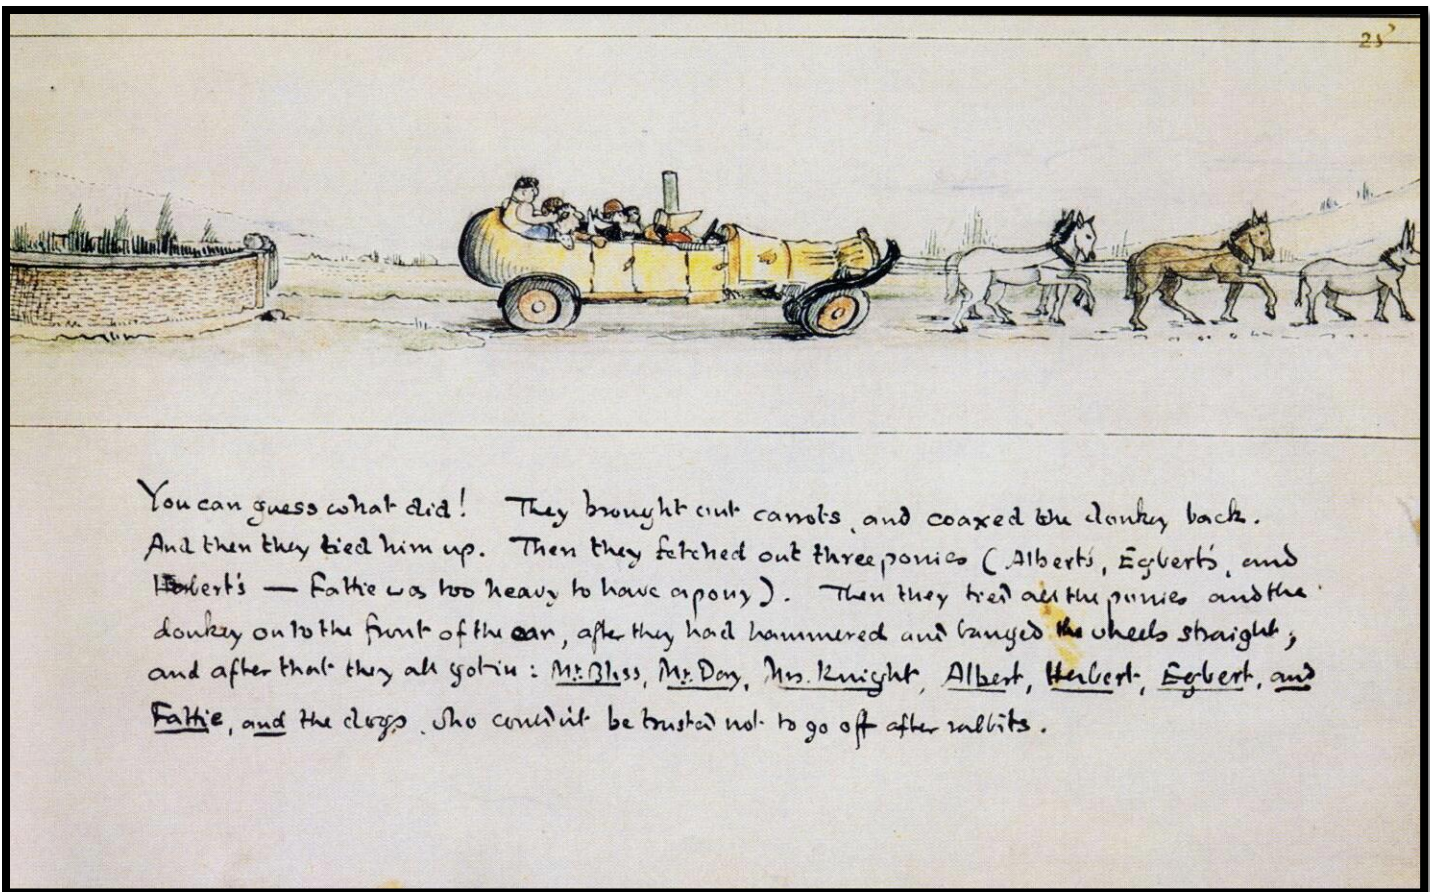 25
You can guess what did! They brought out carrots, and coaxed the donkey back.
And then they tied him up. Then they fetched out three ponies (Albert's, Egbert's, and
Herbert's — Fattie was too heavy to have a pony). Then they tied all the ponies and the
donkey on to the front of the car, after they had hammered and banged the wheels straight;
and after that they all got in: Mr. Bliss, Mr. Day, Mrs. Knight, Albert, Herbert, Egbert, and
Fattie, and the dogs who couldn't be trusted not to go off after rabbits.